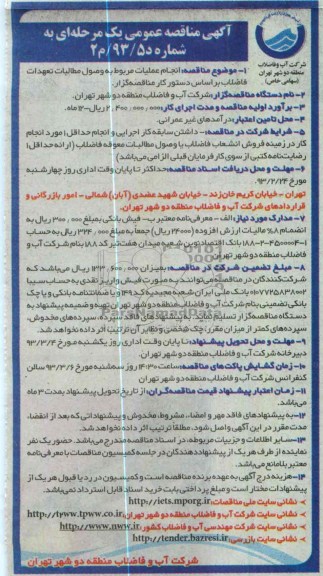 آگهی مناقصه عمومی یک مرحله‌ای به
شماره ۹۳/۵د/۲م
شرکت آب و فاضلاب
منطقه دو شهر تهران
(سهامی خاص)
۱- موضوع مناقصه: انجام عملیات مربوط به وصول مطالبات تعهدات
فاضلاب براساس دستور کار مناقصه‌گزار.
۲- نام دستگاه مناقصه‌گزار: شرکت آب و فاضلاب منطقه دو شهر تهران.
۳- برآورد اولیه مناقصه و مدت اجرای کار: ۲,۴۰۰,۰۰۰,۰۰۰ ریال-۱۲ ماه.
۴- محل تامین اعتبار: درآمدهای غیر عمرانی.
۵- شرایط شرکت در مناقصه: - داشتن سابقه کار اجرایی و انجام حداقل ۱ مورد انجام
کار در زمینه فروش انشعاب فاضلاب یا وصول مطالبات معوقه فاضلاب (ارائه حداقل ۱
رضایت‌نامه کتبی از سوی کارفرمایان قبلی الزامی می‌باشد)
۶- مهلت و محل دریافت اسناد مناقصه: حداکثر تا پایان وقت اداری روز چهارشنبه
مورخ ۹۳/۲/۲۴
تهران - خیابان کریم خان زند - خیابان شهید عضدی (آبان) شمالی - امور بازرگانی و
قراردادهای شرکت آب و فاضلاب منطقه دو شهر تهران.
۷- مدارک مورد نیاز: الف - معرفی‌نامه معتبر ب- فیش بانکی بمبلغ ۳۰۰,۰۰۰ ریال به
انضمام ۸٪ مالیات ارزش افزوده (۲۴۰۰۰ ریال) جمعاً به مبلغ ۳۲۴,۰۰۰ ریال به حساب
بانک اقتصاد نوین شعبه میدان هفت تیر کد ۱۸۸ بنام شرکت آب و
فاضلاب منطقه دو شهر تهران.
۸- مبلغ تضمین شرکت در مناقصه: بمیزان ۱۳۳,۶۰۰,۰۰۰ ریال می‌باشد که
شرکت‌کنندگان در مناقصه می‌توانند به صورت فیش واریز نقدی به حساب سیبا
بانک ملی ایران شعبه مجیدیه کد ۱۴۹ یا ضمانتنامه بانکی و یا چک
بانکی تضمینی بنام شرکت آب و فاضلاب منطقه دو شهر تهران تهیه و ضمیمه پیشنهاد به
دستگاه مناقصه‌گزار تسلیم نمایند. به پیشنهادهای فاقد سپرده، سپرده‌های مخدوش،
سپرده‌های کمتر از میزان مقرر، چک شخصی و نظایر آن ترتیب اثر داده نخواهد شد.
۹- مهلت و محل تحویل پیشنهاد: تا پایان وقت اداری روز یکشنبه مورخ ۹۳/۳/۴
دبیرخانه شرکت آب و فاضلاب منطقه دو شهر تهران.
۱۰- زمان گشایش پاکت‌های مناقصه: ساعت ۱۴:۳۰ روز سه‌شنبه مورخ ۹۳/۳/۶ سالن
کنفرانس شرکت آب و فاضلاب منطقه دو شهر تهران.
۱۱- زمان اعتبار پیشنهاد قیمت مناقصه‌گران: از تاریخ تحویل پیشنهاد بمدت ۳ ماه
می‌باشد.
۱۲- به پیشنهادهای فاقد مهر و امضاء، مشروط، مخدوش و پیشنهاداتی که بعد از انقضاء
مدت مقرر در این آگهی واصل شود، مطلقاً ترتیب اثر داده نخواهد شد.
۱۳- سایر اطلاعات و جزییات مربوطه، در اسناد مناقصه مندرج می‌باشد. حضور یک نفر
نماینده از طرف هر یک از پیشنهاددهندگان در جلسه کمیسیون مناقصات با معرفی‌نامه
معتبر بلامانع می‌باشد.
۱۴- هزینه درج آگهی به عهده برنده مناقصه است و کمیسیون در رد یا قبول هر یک از
پیشنهادات مختار است و مبلغ پرداختی بابت خرید اسناد قابل استرداد نمی‌باشد.
نشانی سایت ملی مناقصات: http://iets.mporg.ir
نشانی سایت شرکت آب و فاضلاب منطقه دو شهر تهران: http://tww.tpww.co.ir
نشانی سایت شرکت مهندسی آب و فاضلاب کشور: http://nww.ir
نشانی سایت بازرسی: http://tender.bazresi.ir
شرکت آب و فاضلاب منطقه دو شهر تهران